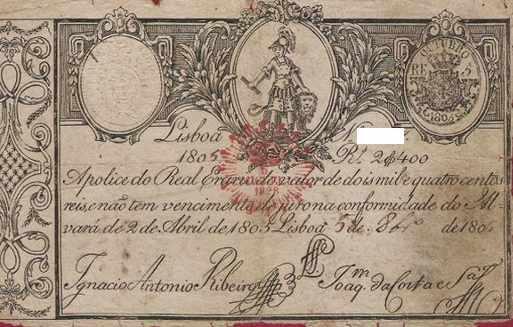 OUTUBRO
RE 5
1805
Lisboa N
1805 Rs. 2$400
Apolice do Real Erario do valor de dois mil e quatro centos
reis, e não tem vencimento de juro na conformidade do Al-
vará de 2 de Abril de 1805 Lisboa 5 de 8bro de 1805
Ignacio Antonio Ribeiro Joaqm. da Costa e